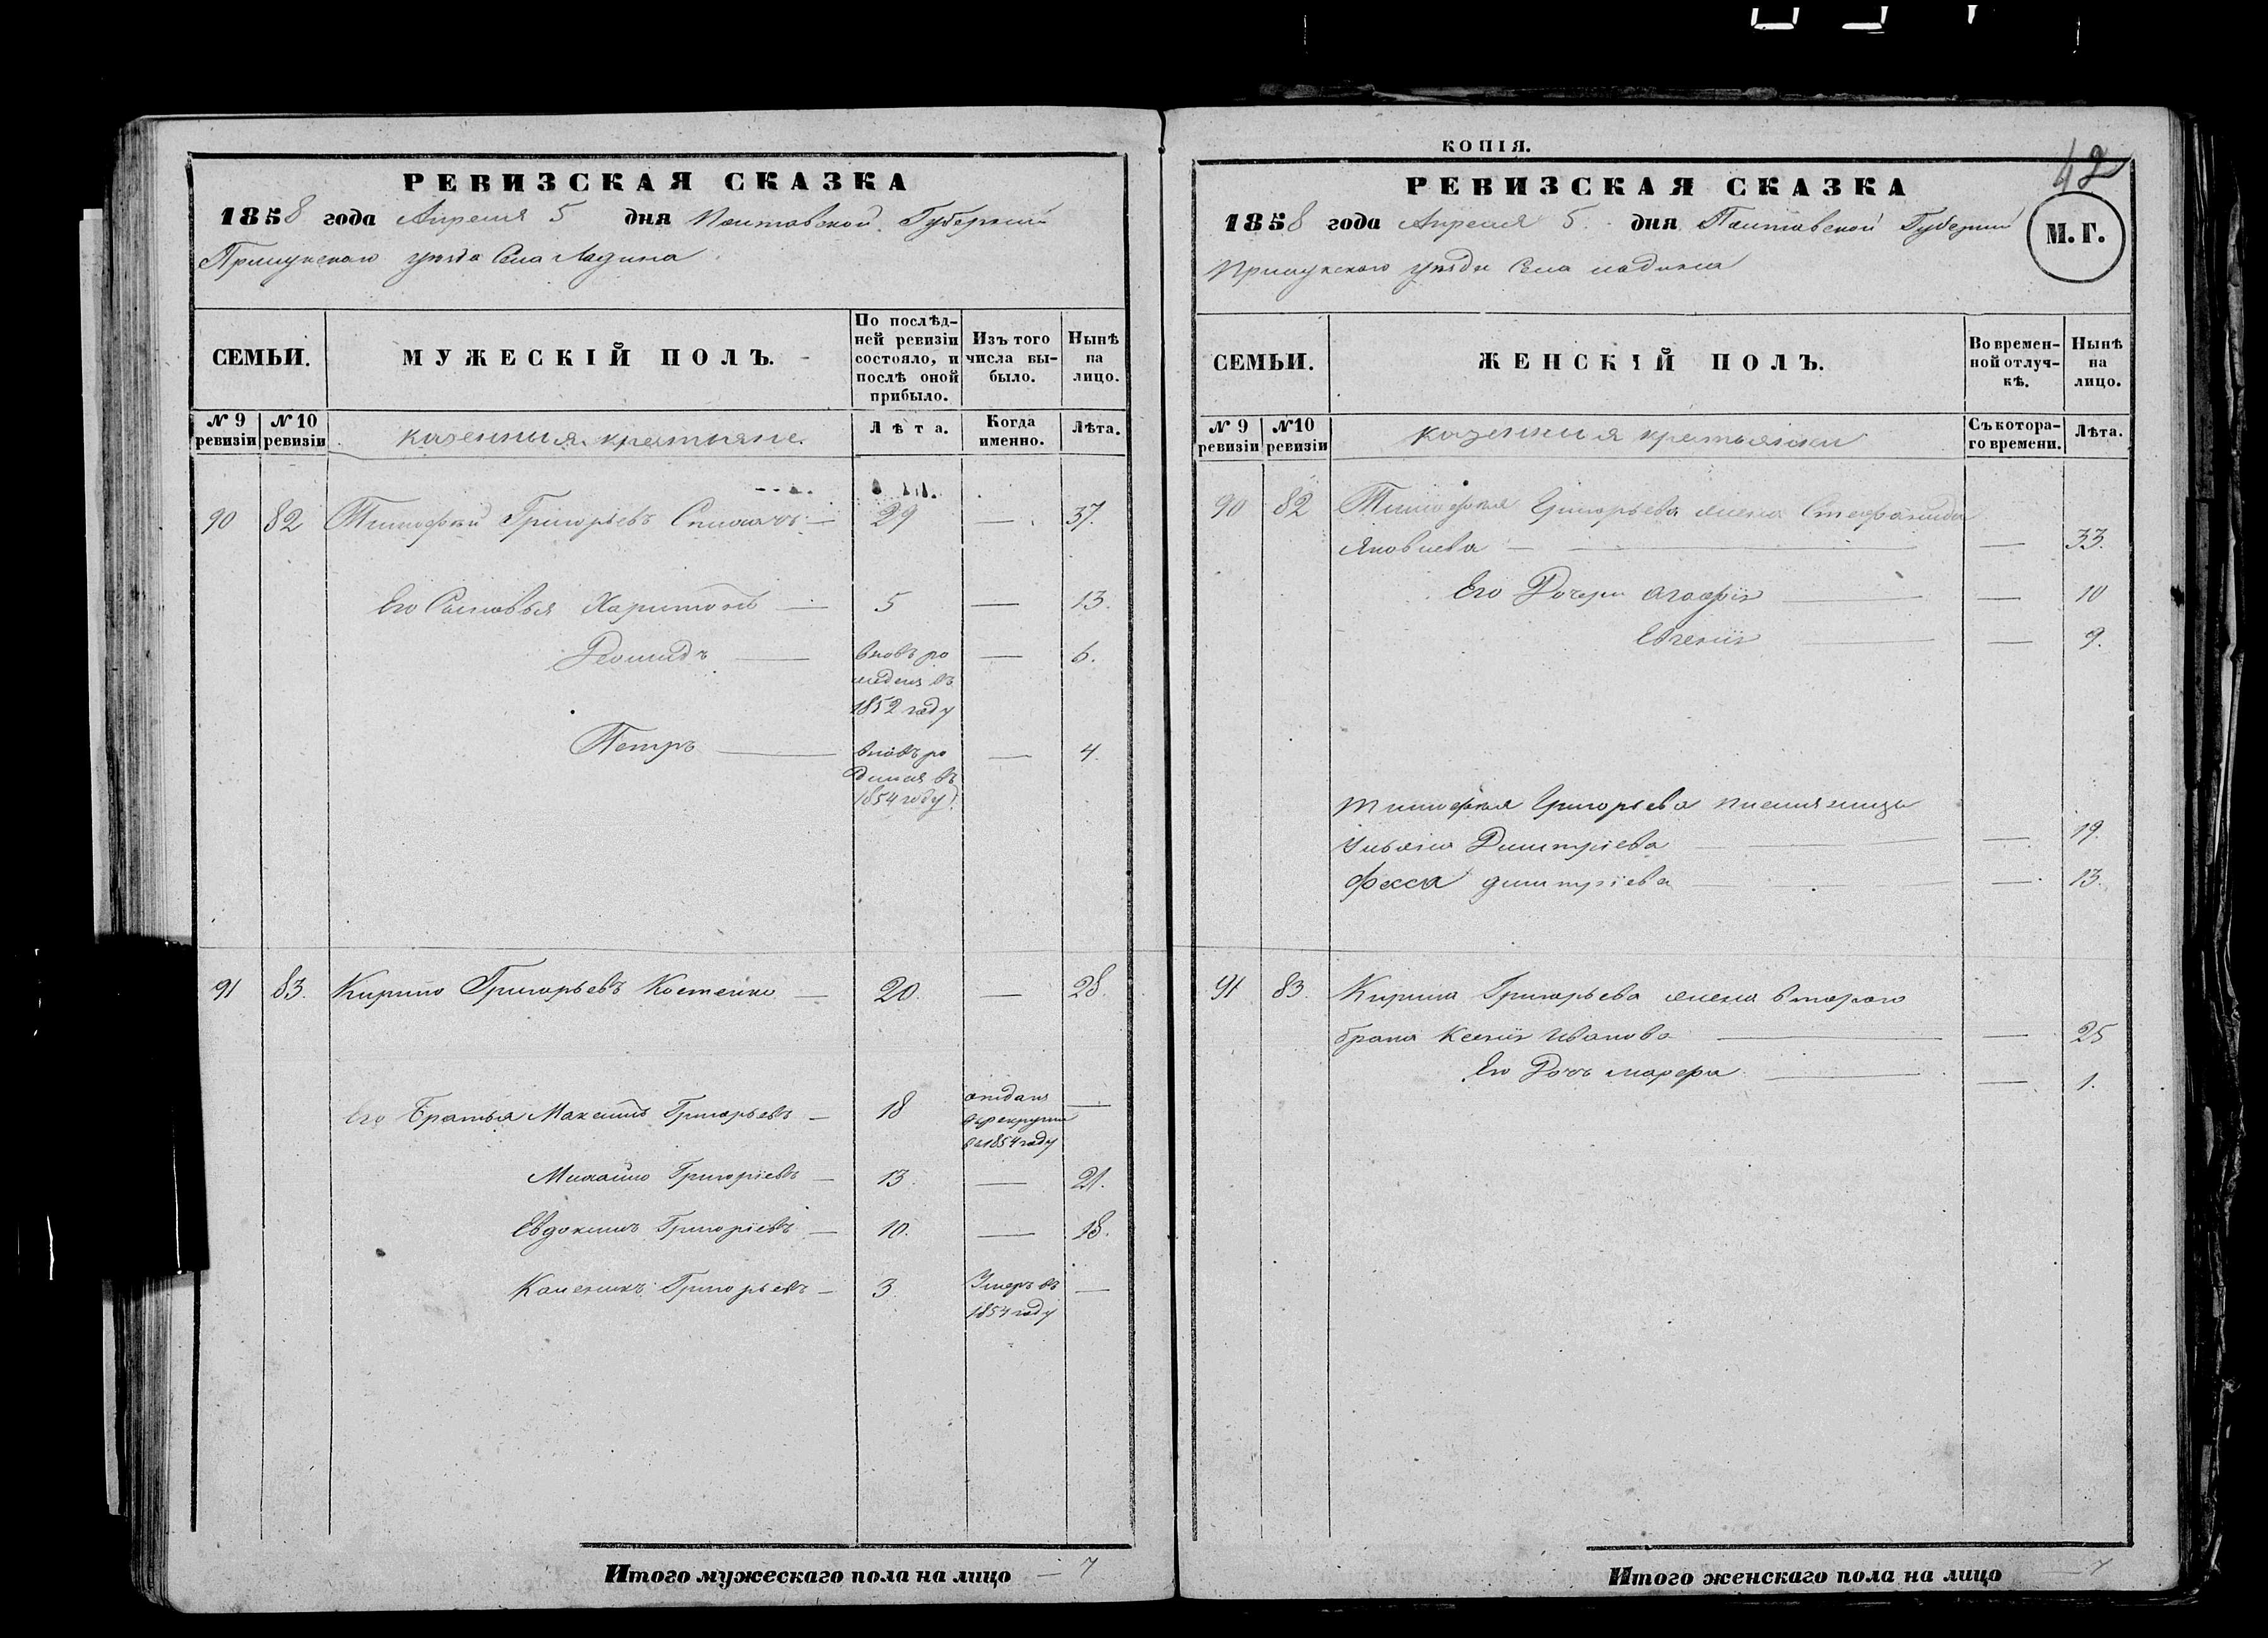 РЕВИЗСКАЯ СКАЗКА
1858 года Апреля 5 дня Полтавской Губернии
Прилукского уѣзда Села Ладина
СЕМЬИ.
МУЖЕСКІЙ ПОЛЪ.
По послѣд-
ней ревизіи
состояло, и
послѣ оной
прибыло.
Изъ того
числа вы-
было.
Нынѣ
на
лицо.
№ 9
ревизіи
№ 10
ревизіи
казенныя крестьяне.
Лѣта.
Когда
именно.
Лѣта.
90 82 Тимофѣй Григорьевъ — 29 — 37.
Его Сыновья Харитонъ — 5 — 13.
Леонидъ — вновь ро — 6.
жденъ въ
1852 году
Петръ — вновь ро — 4.
1854 году
91 83. Кирило Григорьевъ Костенко — 20. — 28.
Его Братья Максимъ Григорьевъ — 18 отданъ —
въ рекруты
въ 1854 году
Михайло Григоріевъ — 13. — 21.
Евдокимъ Григоріевъ — 10. — 18.
Григорьевъ — 3. Умеръ въ —
1854 году
Итого мужескаго пола на лицо — 7
КОПІЯ.
42
РЕВИЗСКАЯ СКАЗКА
1858 года Апреля 5. дня Полтавской Губерніи
Прилукского уѣзда Села Ладина
М. Г.
СЕМЬИ.
ЖЕНСКІЙ ПОЛЪ.
Во времен-
ной отлуч-
кѣ.
Нынѣ
на
лицо.
№ 9
ревизіи
№ 10
ревизіи
казенныя крестьянки
Съ котора-
го времени.
Лѣта.
90 82 Тимофея Григорьева жена Стефанида
Яковлева — — 33.
Его Дочери Агафія — — 10
Евгенія — — 9.
Тимофея Григорьева племяницы
Ульяна Димитріева — — 19.
Фекла Димитріева — — 13.
91 83. Кирила Григорьева жена второго
брака Ксенія Иванова — — 25
Его Дочь Марфа — — 1.
Итого женскаго пола на лицо — 7